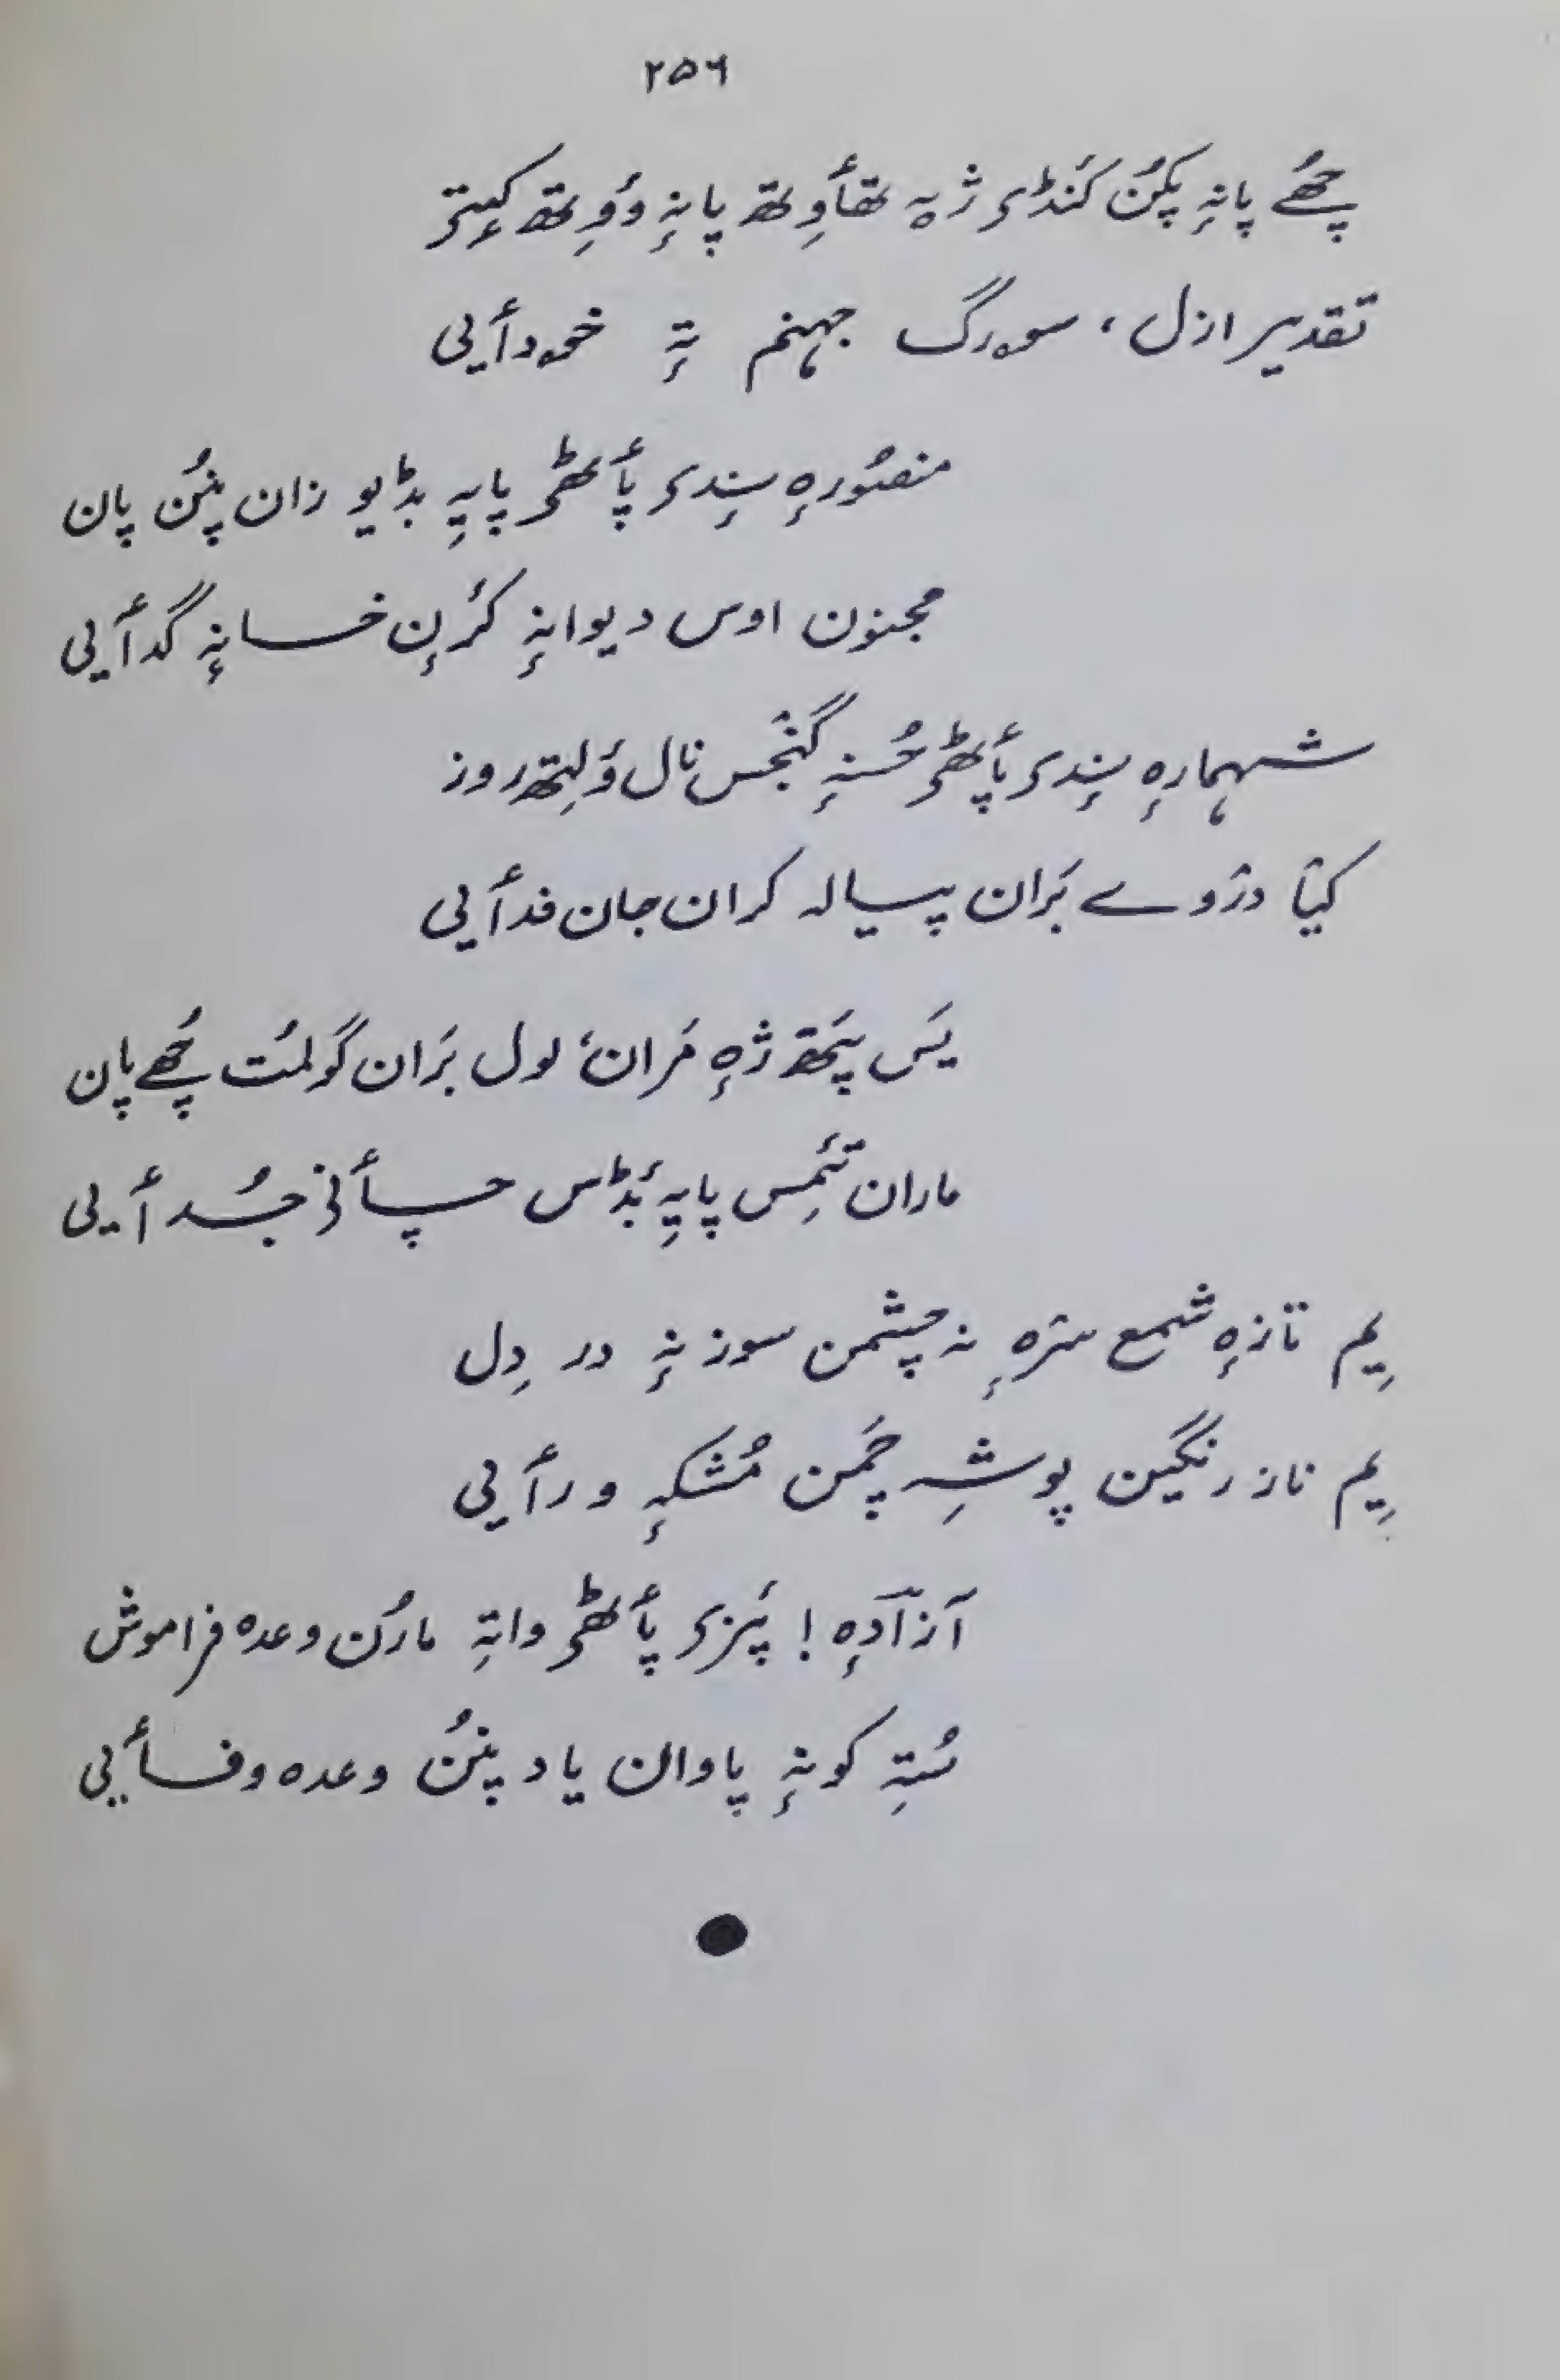 ۲۵۶
چھُے پانہٕ پکُن کَنڈٕۍ ژٕہ تھٲوِتھ پانہٕ وُوِتھ کیٖتۍ
تقدیر ازل، سۄرگ جہنم تہٕ خۄدٲیی
منصُورہٕ سٕنٛدۍ پٲٹھۍ پایہِ بڈیو زان پنُن پان
مجنون اوس دیوانہٕ کرٕنۍ خسانہٕ گدٲیی
شہمارہٕ سٕنٛدۍ پٲٹھۍ حُسنہٕ گنٛجس نال وَلِتھ روز
کیٛا دزوے بَران پیالہ کران جان فدٲیی
یَس پَتھ ژٕہ مَران، لول بَران گولمُت چھُے پان
ماران تَمِس پایہِ بَڈِس چٲنۍ جُدٲیی
یِم تازہٕ شمع سۭتۍ نہ چشمن سوز نہٕ در دِل
یِم ناز رنگین پوشہِ چَمن مُشکہٕ ورٲیی
آزآدہٕ! پَزۍ پٲٹھۍ واتہِ مارُن وعدہ فراموش
سُتہِ کونہٕ پاوان یاد پنُن وعدہ وفٲیی